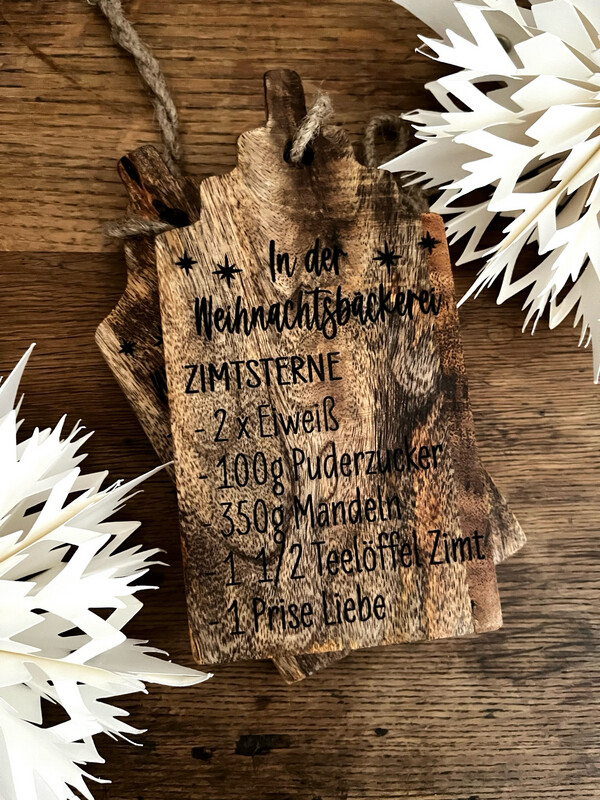 In der
Weihnachtsbäckerei
ZIMTSTERNE
- 2 x Eiweiß
- 100g Puderzucker
- 350g Mandeln
- 1 1/2 Teelöffel Zimt
- 1 Prise Liebe